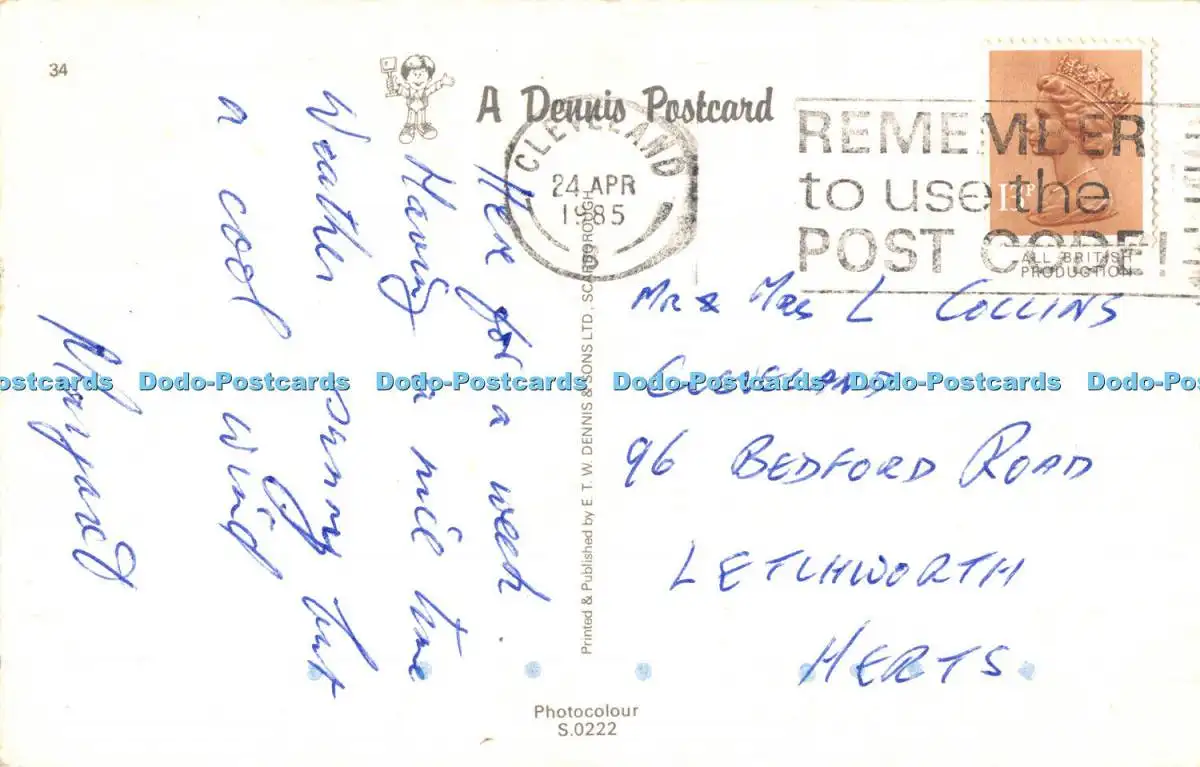 34
A Dennis Postcard
CLEVELAND
24 APR
1985
REMEMBER
to use the
POST CODE!
13P
ALL BRITISH
PRODUCTION
Here for a week.
Having a nice time
Weather sunny but
a cool wind
Printed & Published by E. T. W. DENNIS & SONS LTD., SCARBOROUGH
Mr & Mrs L COLLINS
CLEVELAND
96 BEDFORD ROAD
LETCHWORTH
HERTS.
Dodo-Postcards Dodo-Postcards Dodo-Postcards Dodo-Postcards Dodo-Postcards
Photocolour
S.0222